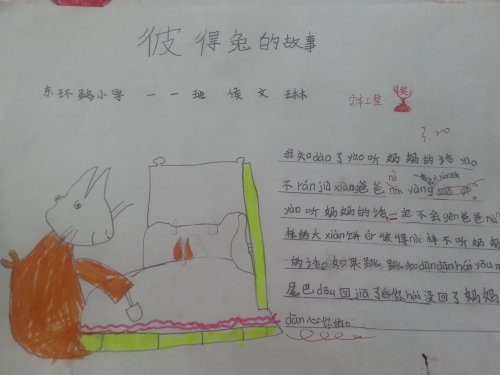 彼得兔的故事
东环路小学 一一班 侯文琳
字体工整 奖
我知dào了yào听妈妈的话yào
不rán jiù xiàng爸爸 nà yàng
yào听妈妈的话一定不会gēn爸爸nà
样的大xiàn饼ér彼得nà样不听妈妈
的话。如果跳跳和dūndūn hái yǒu
尾巴dōu回jiā了 hái没回了妈妈
dān心